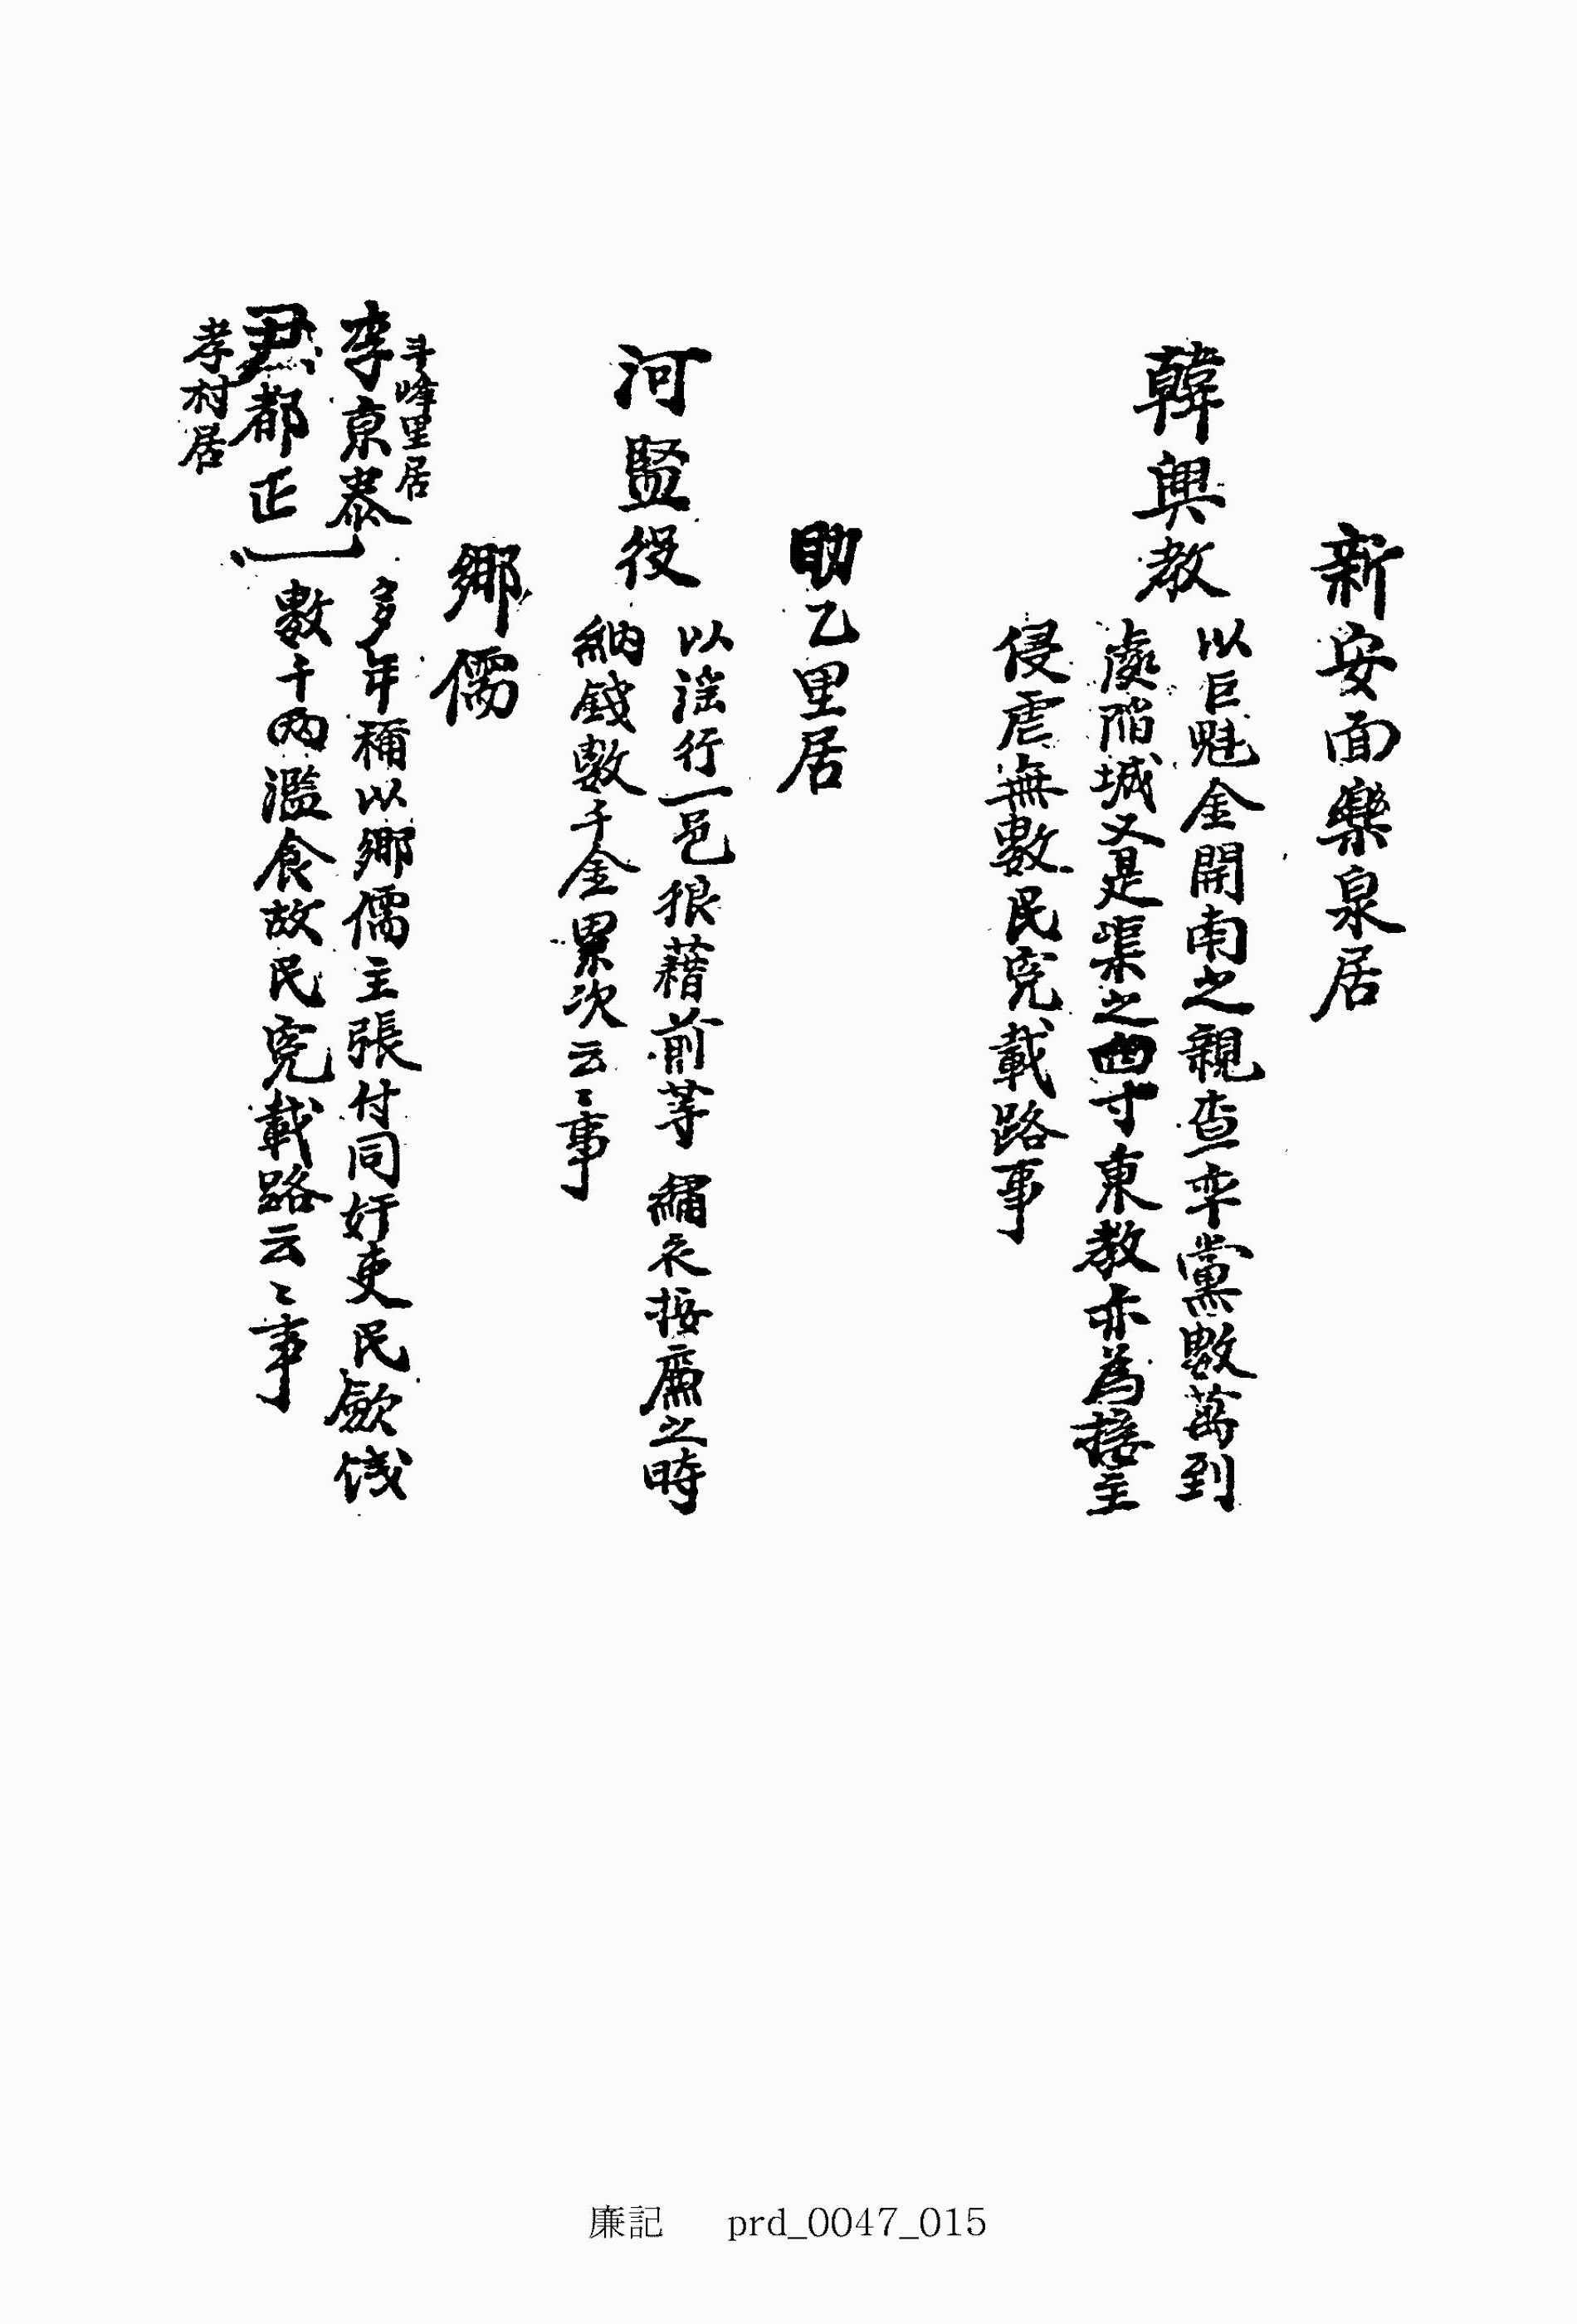 新安面樂泉居
韓興教
以巨魁金開南之親查率黨數萬到
處陷城又是渠之四寸東教亦為接主
侵虐無數民寃載路事
助乙里居
河監役
以淫行一邑狼藉前等 繡衣按廉之時
納錢數千金累次云〻事
鄉儒
斗峰里居
李京泰
尹都正
孝村居
多年稱以鄉儒主張付同奸吏民斂錢
數千兩濫食故民寃載路云〻事
廉記 prd_0047_015